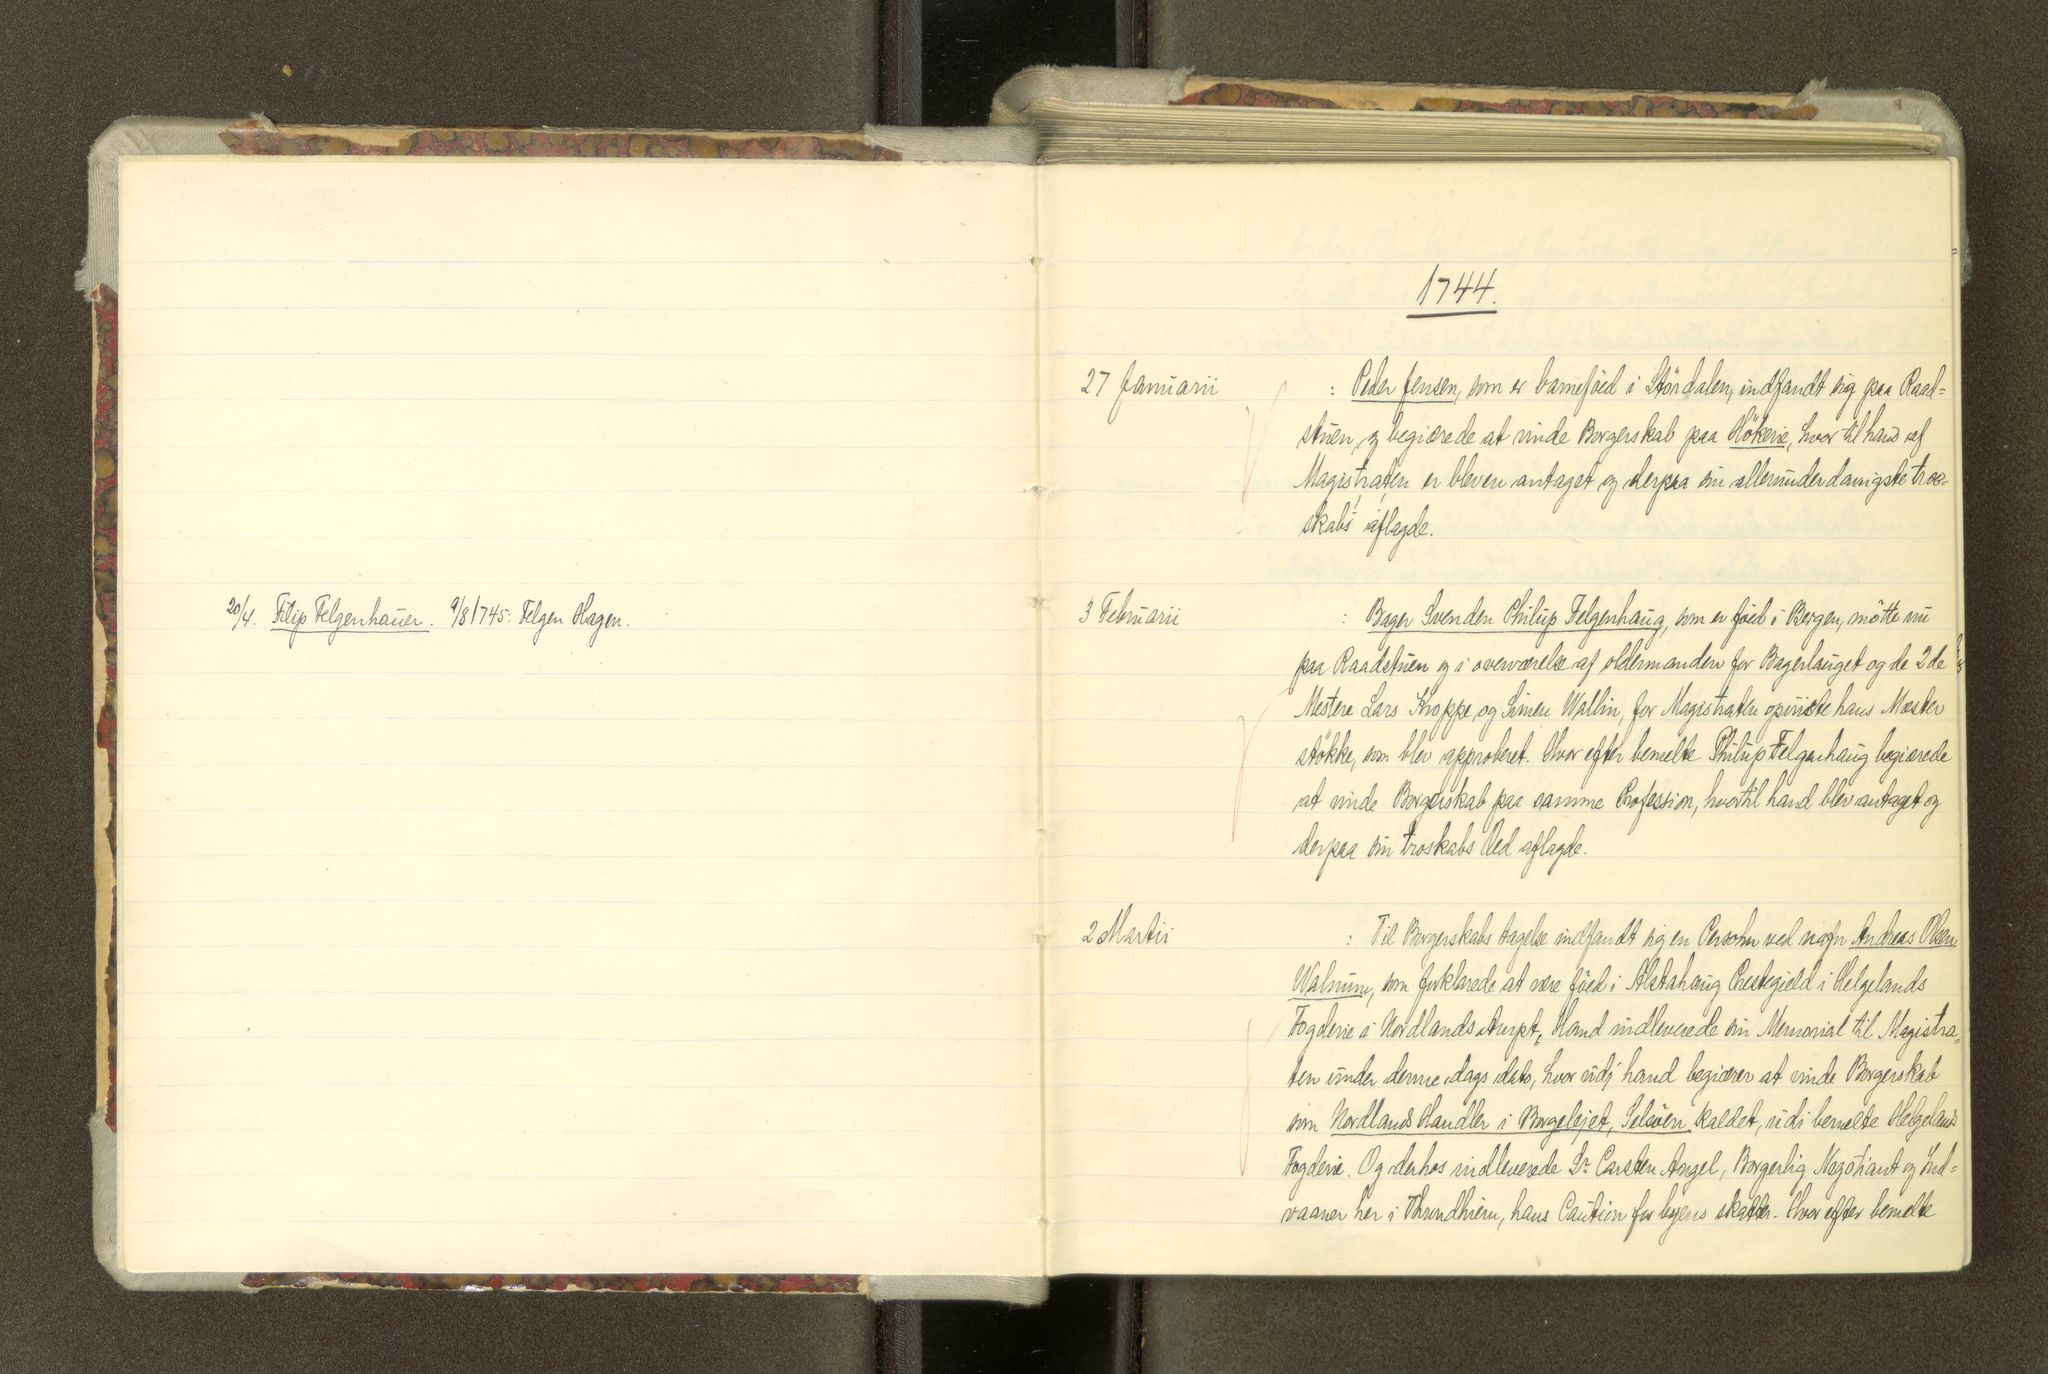 20/4. Filip Felgenhauer. 9/8 1745: Felgen Hagen.
1744.
27 Januarii : Peder Jensen, som er barneföed i Stördalen, indfandt sig paa Raad=
stuen, og begiærede at vinde Borgerskab paa Hökerie, hvor til hand af
Magistraten er bleven antaget og derpaa sin allerunderdanigste troe=
skabs aflagde.
3 Februarii : Bager Svenden Philip Felgenhaug, som er föed i Bergen, mötte nu
paa Raadstuen og i overværelse af oldermanden for Bagerlauget og de 2de
Mestere Lars Kroppe og Simen Wallin, for Magistraten opviiste hans Mæster
stökke, som blev approberet. Hvor efter bemelte Philip Felgenhaug begiærede
at vinde Borgerskab paa samme Profession, hvortil hand blev antaget og
derpaa sin troskabs Ued aflagde.
2 Martii : Til Borgerskabs tagelse indfandt sig en Persohn ved nafn Andreas Olsen
Walnum, som forklarede at være föed i Alstahoug Prestegield i Helgelands
Fogderie i Nordlands Ampt, Hand indleverede sin Memorial til Magistra=
ten under denne dags dato, hvor udj hand begiærer at vinde Borgerskab
som Nordlands Handler i Borgelejet, Selsöen kaldet, udi bemelte Helgelands
Fogderie. Og derhos indleverede Sr. Carsten Angel, Borgerlig Negotiant og Ind=
vaaner her i Thrundhiem, hans Caution for byens skatter. Hvor efter bemelte